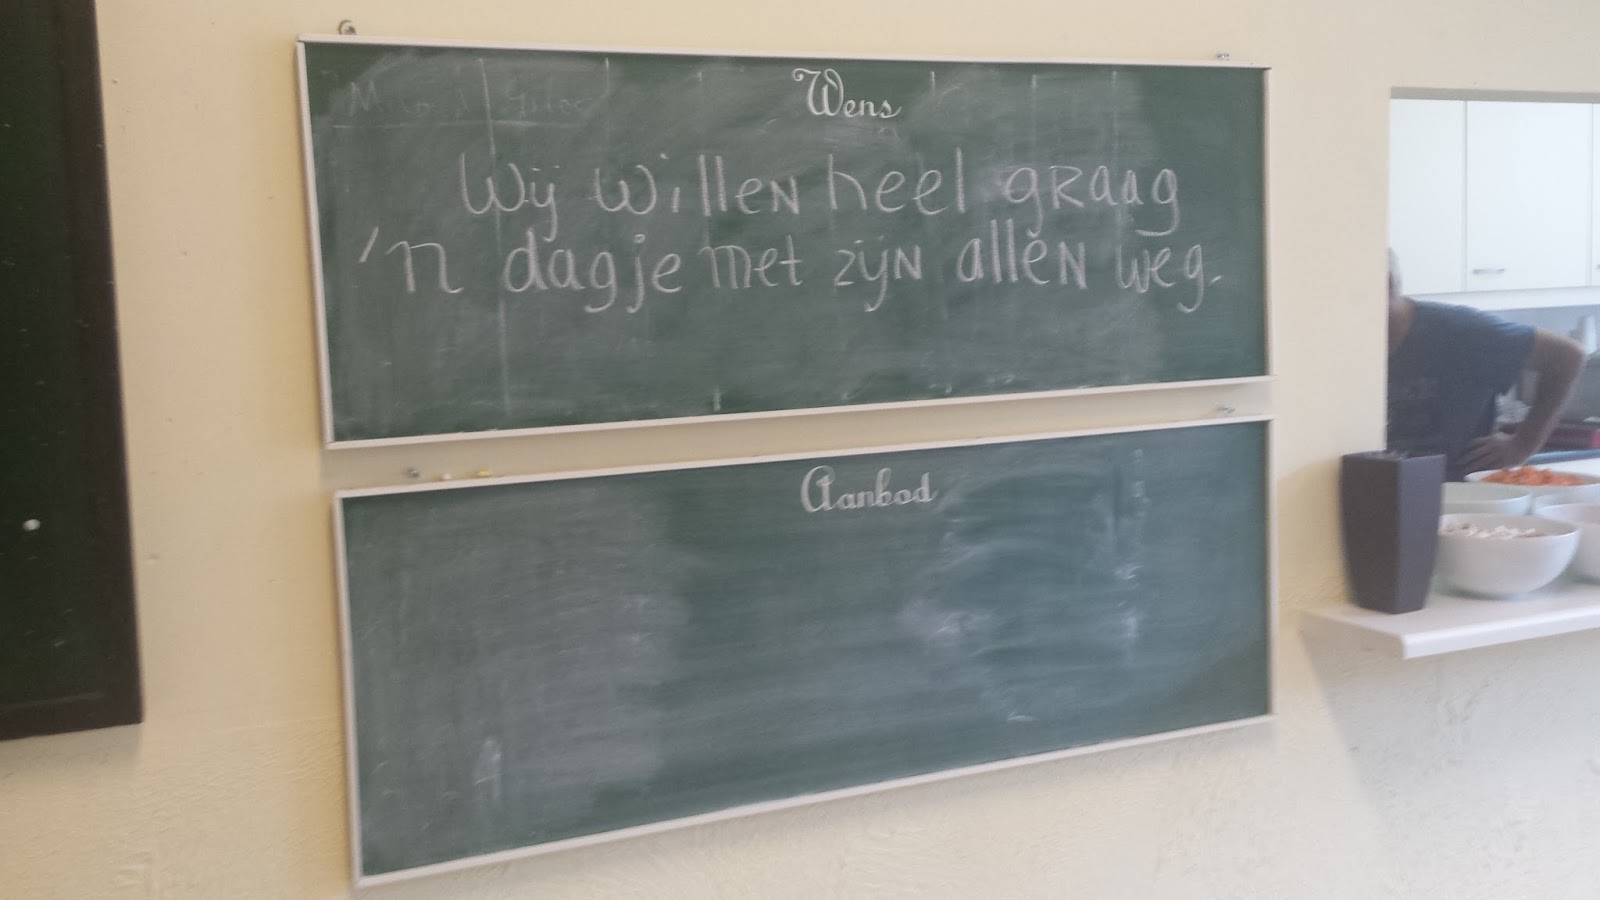 Wens
Wij willen heel graag
'n dagje met zijn allen weg.
Aanbod